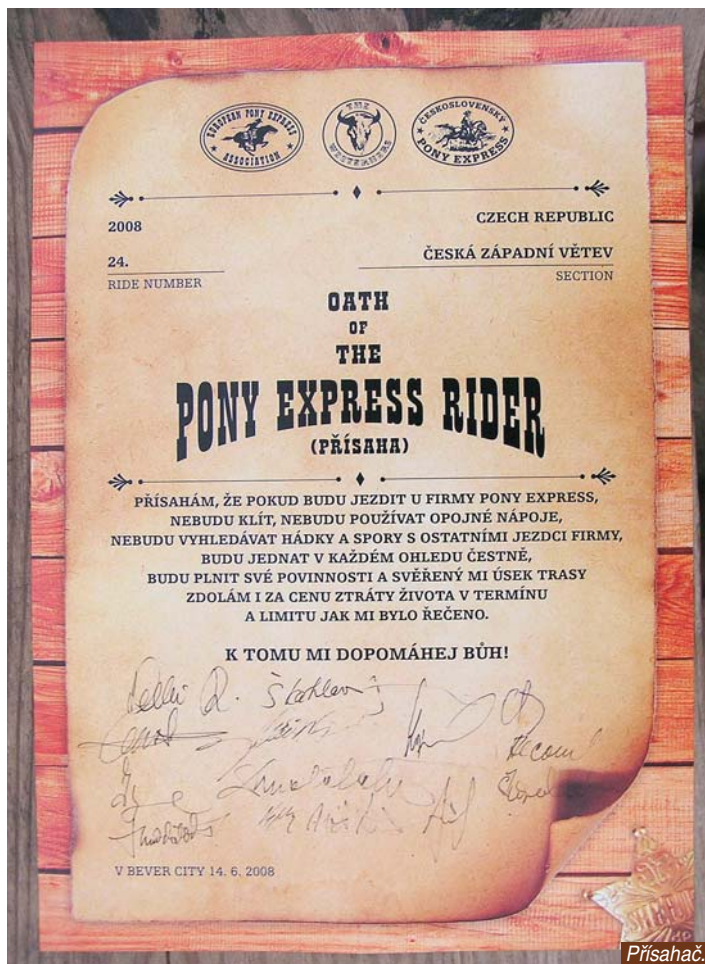 EUROPEAN PONY EXPRESS
ASSOCIATION
THE
WESTERNERS
ČESKOSLOVENSKÝ
PONY EXPRESS
2008
CZECH REPUBLIC
24.
ČESKÁ ZÁPADNÍ VĚTEV
RIDE NUMBER
SECTION
OATH
OF
THE
PONY EXPRESS RIDER
(PŘÍSAHA)
PŘÍSAHÁM, ŽE POKUD BUDU JEZDIT U FIRMY PONY EXPRESS,
NEBUDU KLÍT, NEBUDU POUŽÍVAT OPOJNÉ NÁPOJE,
NEBUDU VYHLEDÁVAT HÁDKY A SPORY S OSTATNÍMI JEZDCI FIRMY,
BUDU JEDNAT V KAŽDÉM OHLEDU ČESTNĚ,
BUDU PLNIT SVÉ POVINNOSTI A SVĚŘENÝ MI ÚSEK TRASY
ZDOLÁM I ZA CENU ZTRÁTY ŽIVOTA V TERMÍNU
A LIMITU JAK MI BYLO ŘEČENO.
K TOMU MI DOPOMÁHEJ BŮH!
V BEVER CITY 14. 6. 2008
Přísahač.